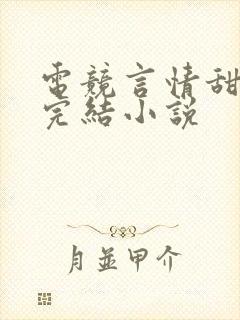 電競言情甜
完結小說
月並甲介